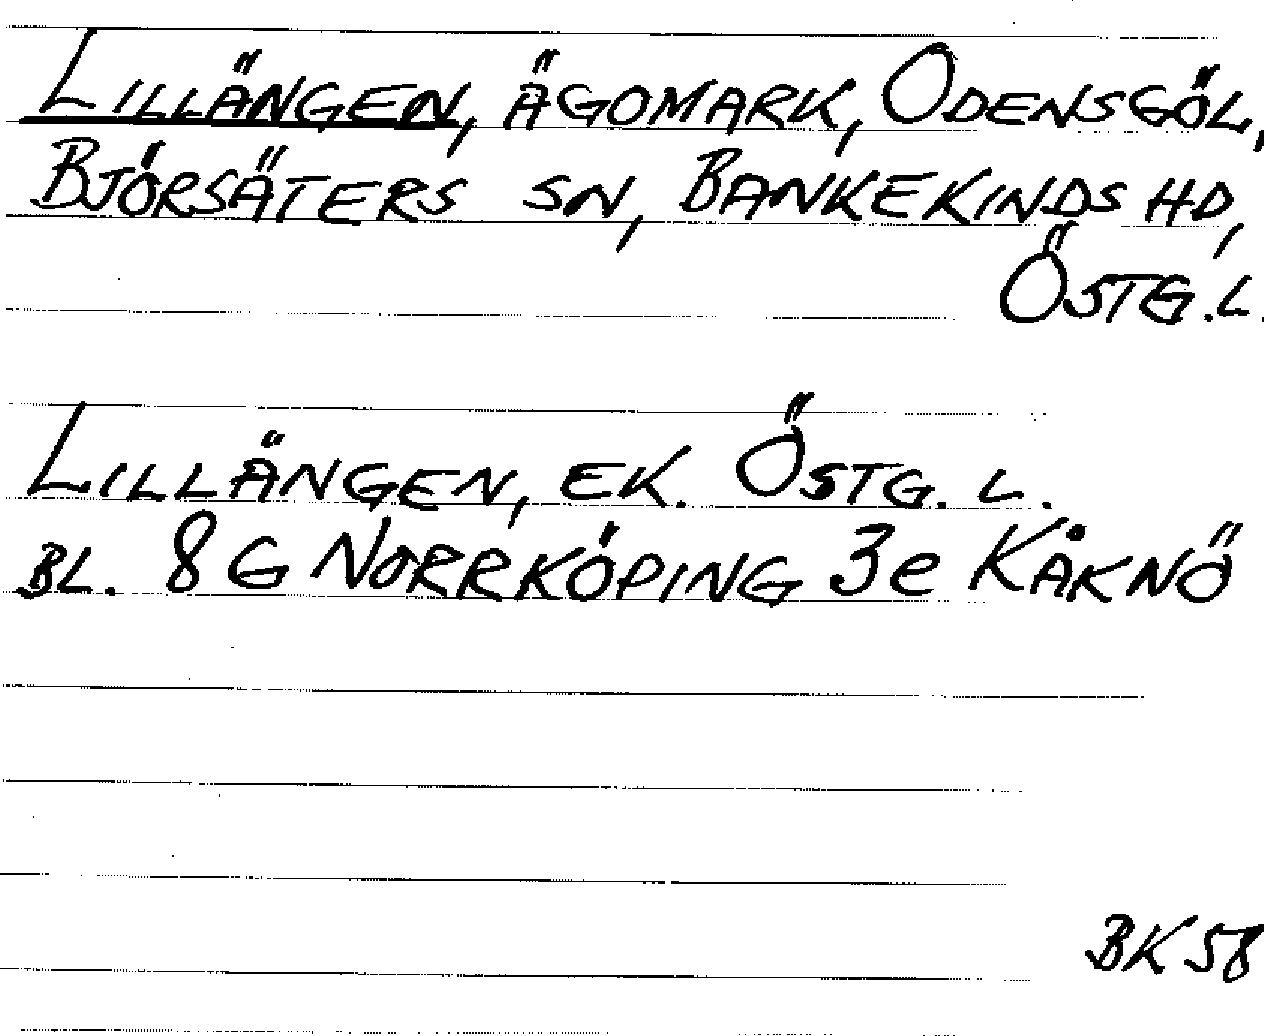 LILLÄNGEN, ÄGOMARK, ODENSGÖL,
BJÖRSÄTERS SN, BANKEKINDS HD,
ÖSTG.L.
LILLÄNGEN, EK. ÖSTG. L.
BL. 8G NORRKÖPING 3e KÅKNÖ
BK 58